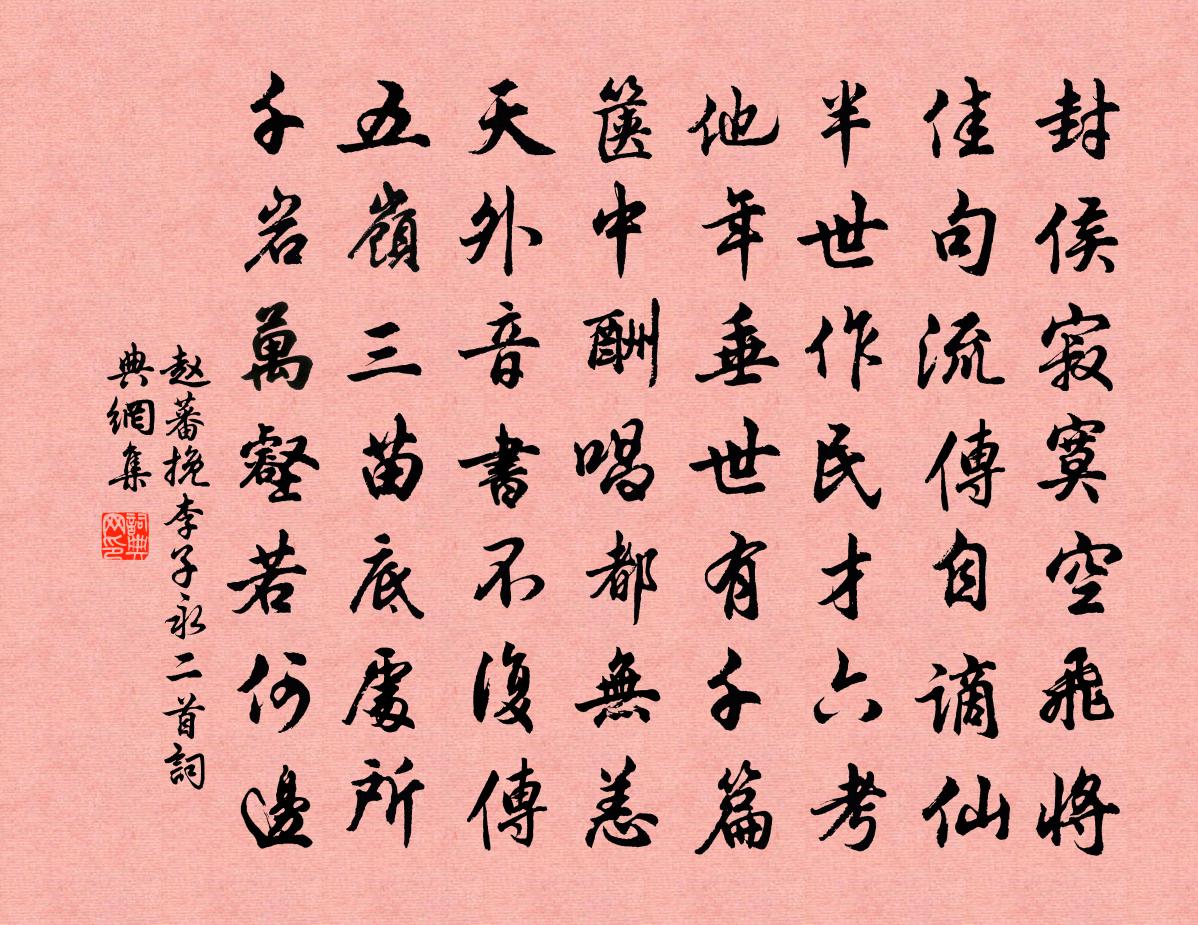 封侯寂寞空飛將
佳句流傳自謫仙
半世作民才六考
他年垂世有千篇
篋中酬唱都無恙
天外音書不復傳
五嶺三苗底處所
千岩萬壑若何邊
赵蕃挽李子永二首詞
典網集
詞典网印